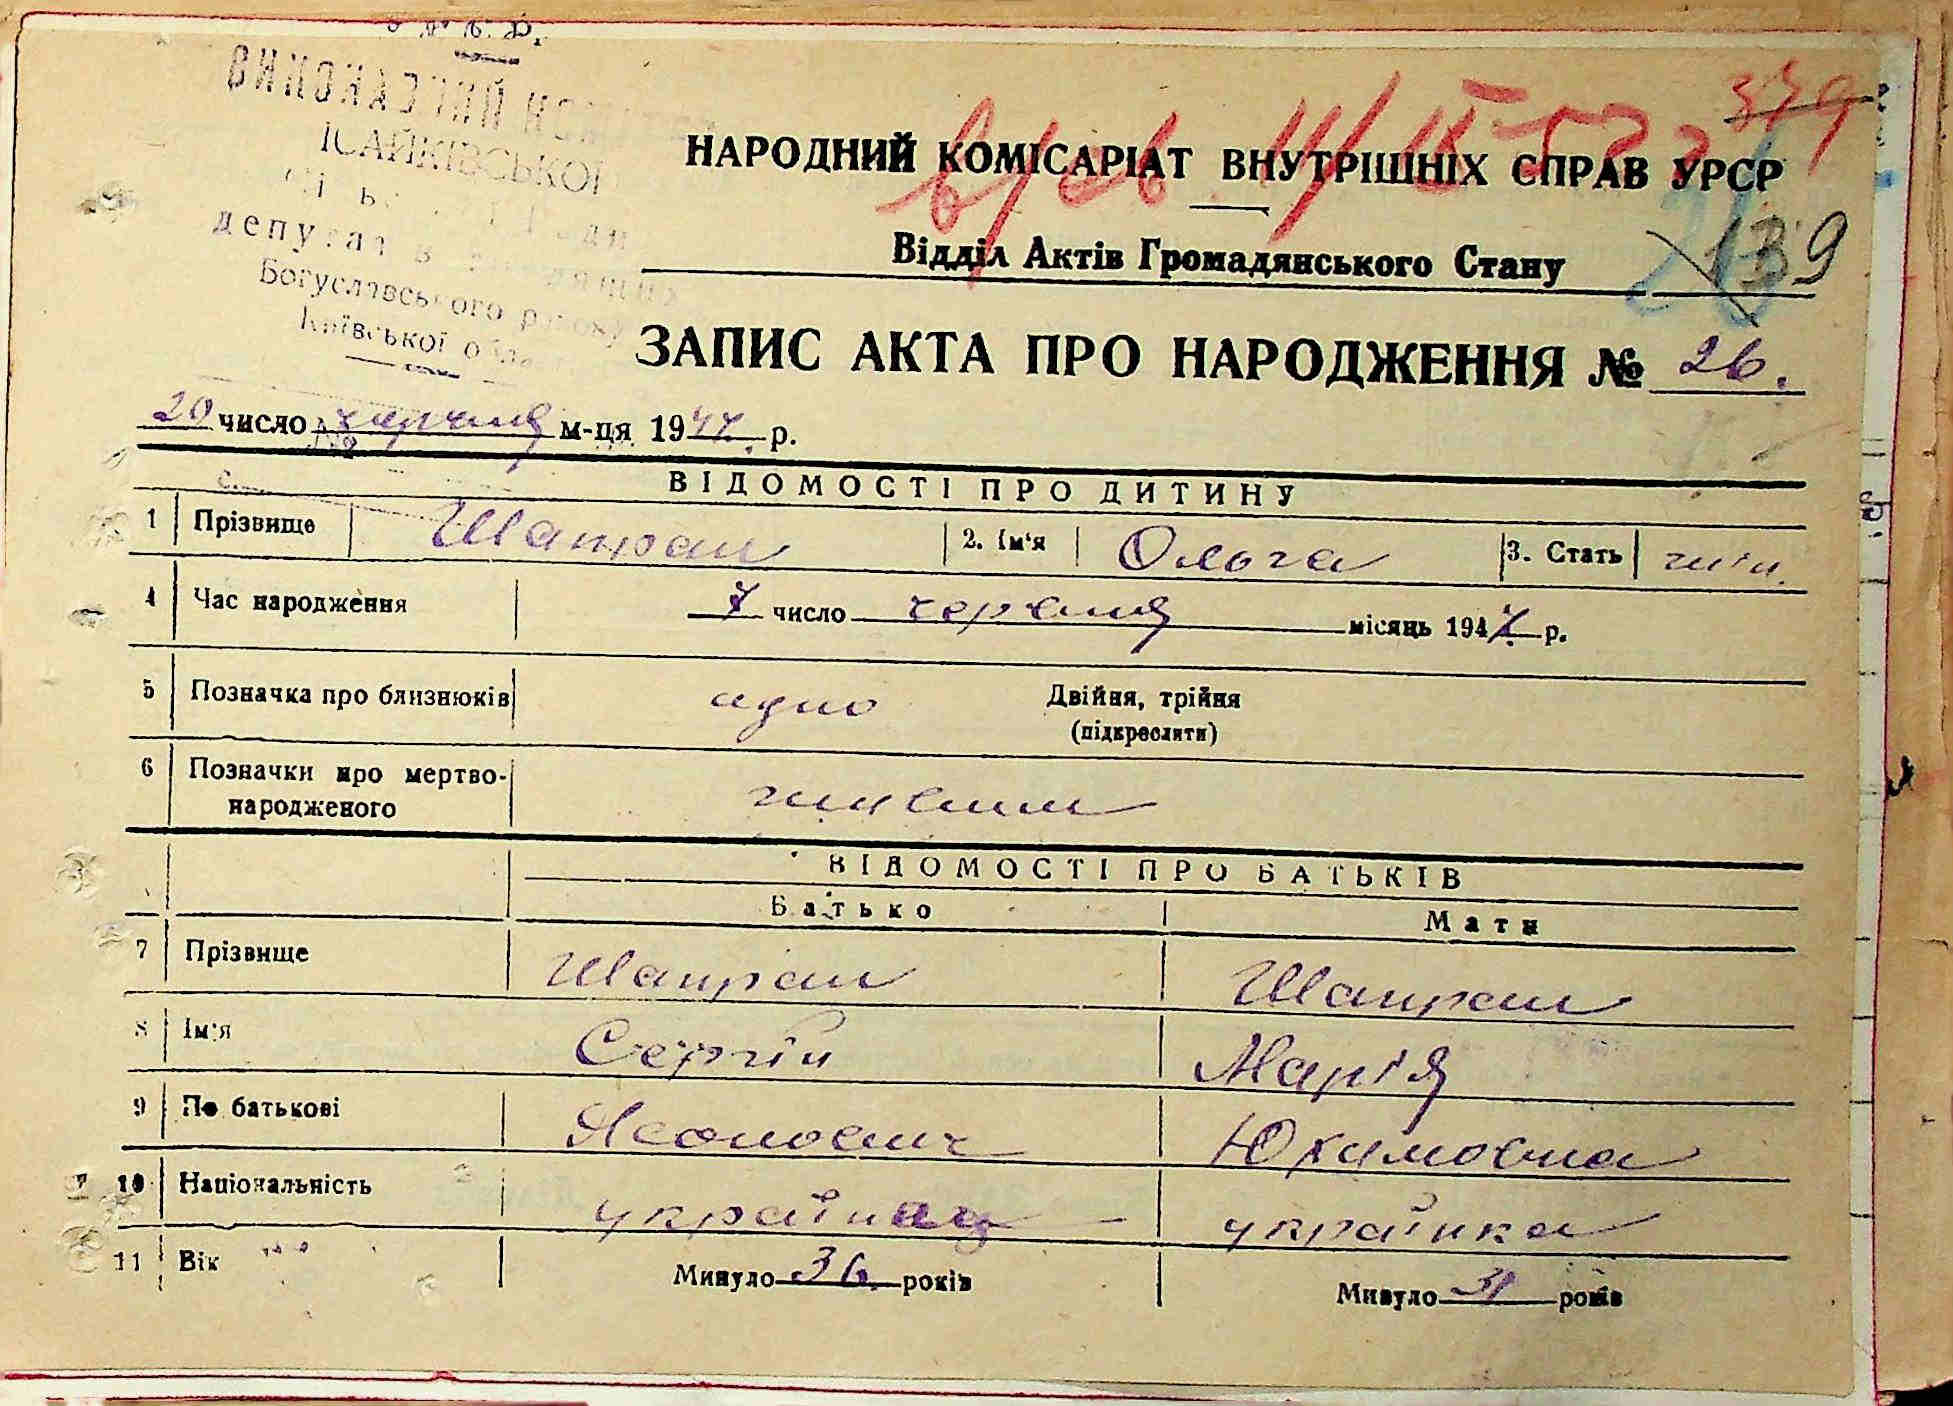 У.Р.С.Р.
ВИКОНКОМ
ІСАЙКІВСЬКОЇ
депутатів трудящих
Богуславського району
Київської області
379
НАРОДНИЙ КОМІСАРІАТ ВНУТРІШНІХ СПРАВ УРСР
139
Відділ Актів Громадянського Стану
ЗАПИС АКТА ПРО НАРОДЖЕННЯ № 26.
20 число червня м-ця 1947 р.
№
ВІДОМОСТІ ПРО ДИТИНУ
1 Прізвище Шапран 2. Ім'я Ольга 3. Стать жін.
4 Час народження 7 число червня місяць 1947 р.
5 Позначка про близнюків одно Двійня, трійня
(підкреслити)
6 Позначки про мертво-
народженого живим
ВІДОМОСТІ ПРО БАТЬКІВ
Батько Мати
7 Прізвище Шапран Шапран
8 Ім'я Сергій Марія
9 По батькові Юхимовна
10 Національність українец українка
11 Вік Минуло 36 років Минуло 31 років